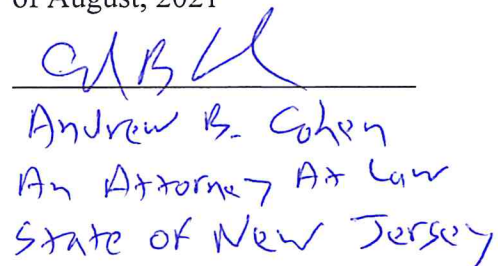 of August, 2021
Andrew B. Cohen
An Attorney At Law
State of New Jersey